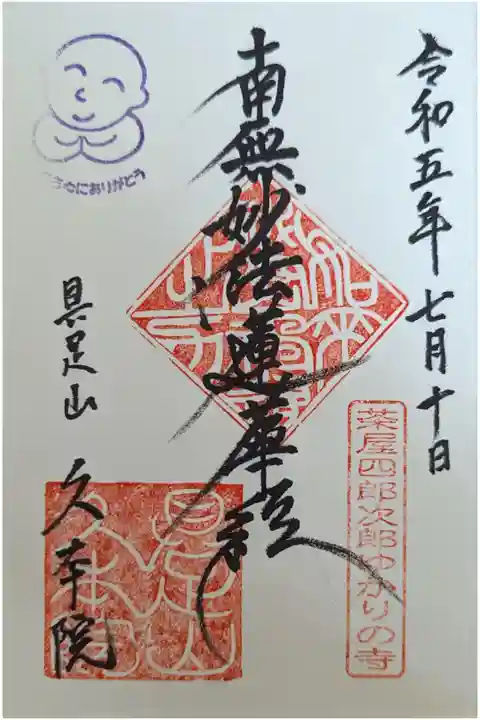 令和五年七月十日
茶屋四郎次郎ゆかりの寺
南無妙法蓮華経
にありがとう
具足山
久本院
具足山
久本院